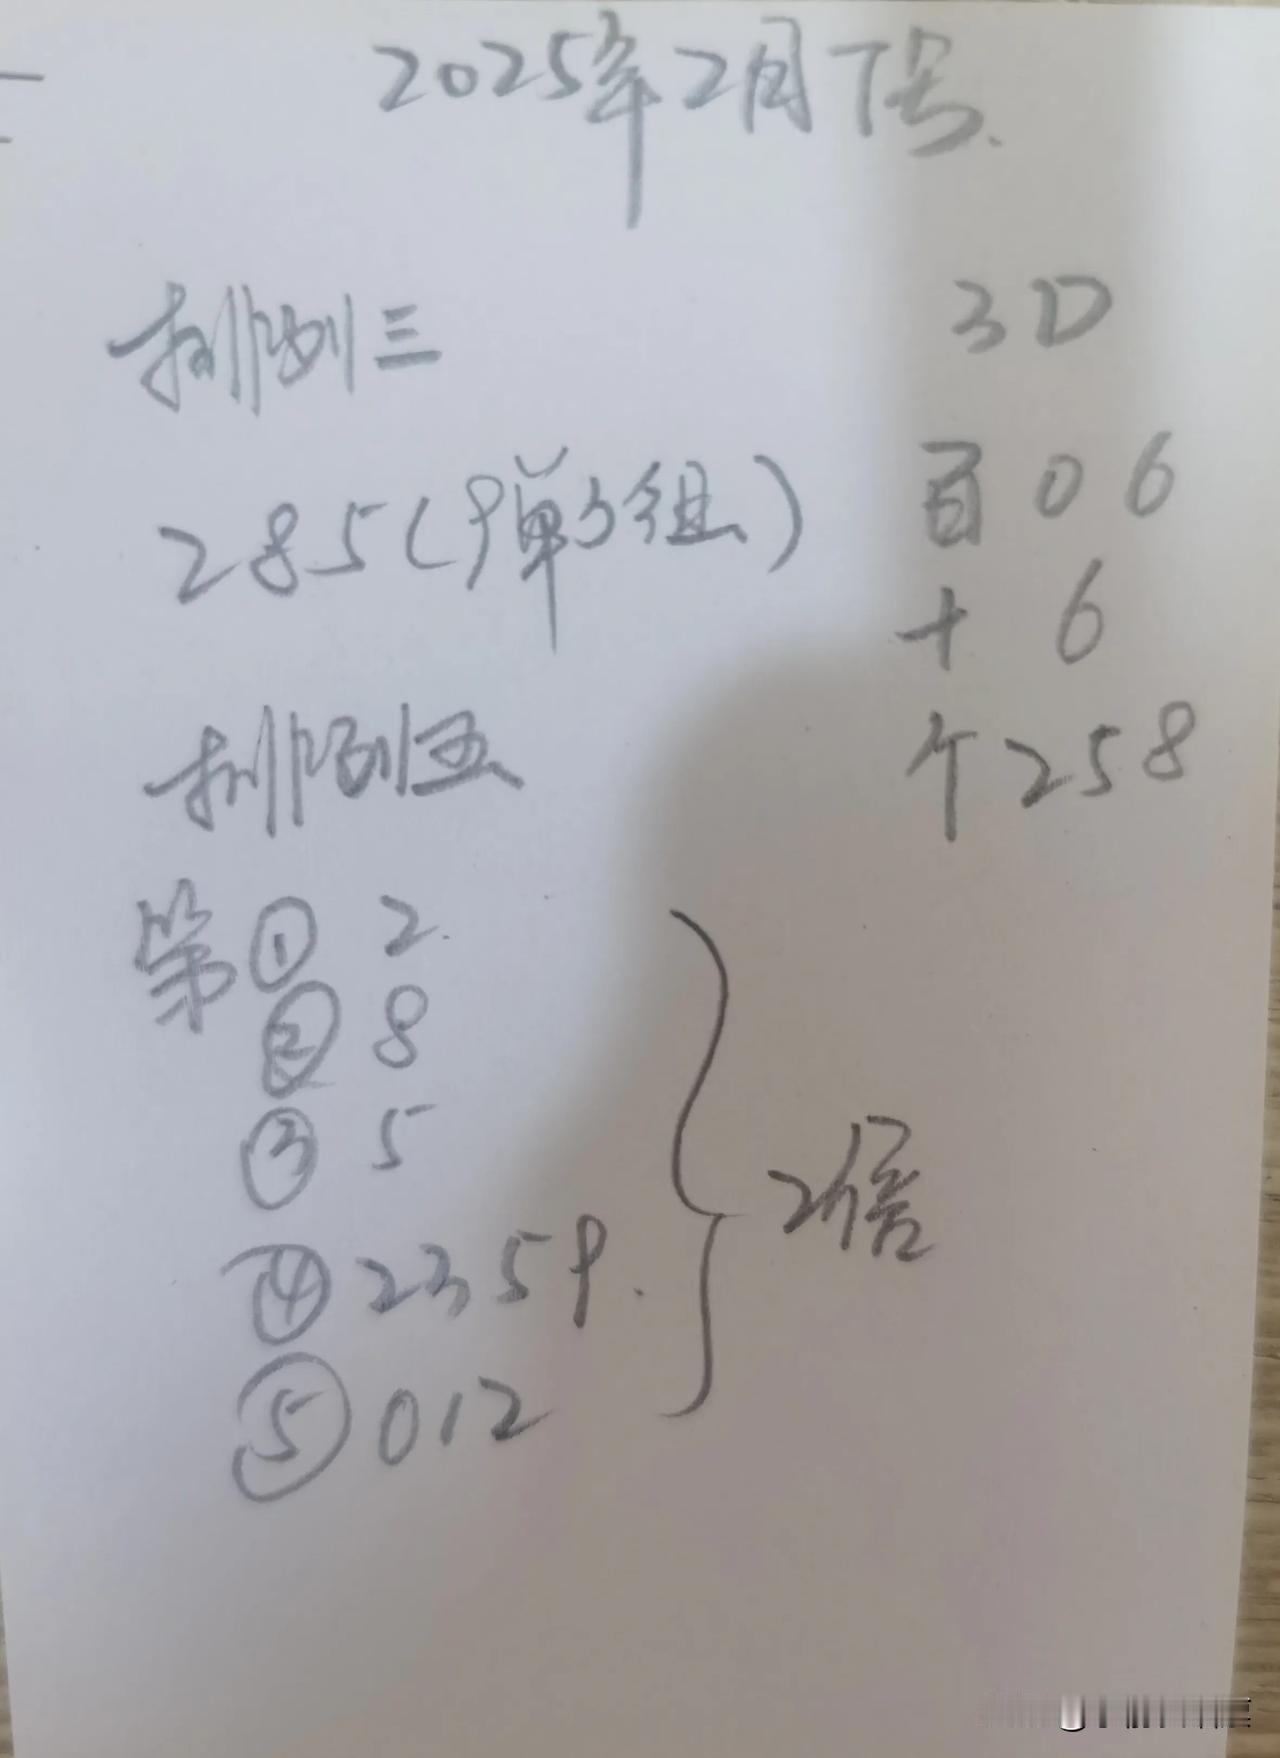 2025年2月7号.
排列三
285(9单3组)
3D
百 0 6
十 6
个 258
排列五
第① 2.
② 8
③ 5
④ 2359.
⑤ 012
2倍